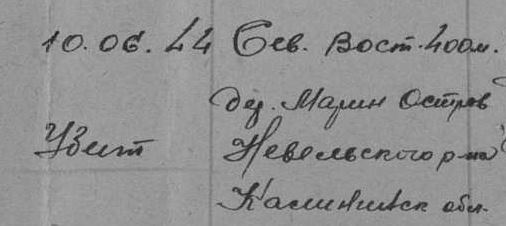 10.06.44 Сев. Вост. 400м.
дер. Марин Остров
Убит Невельского р-на
Калининск обл.